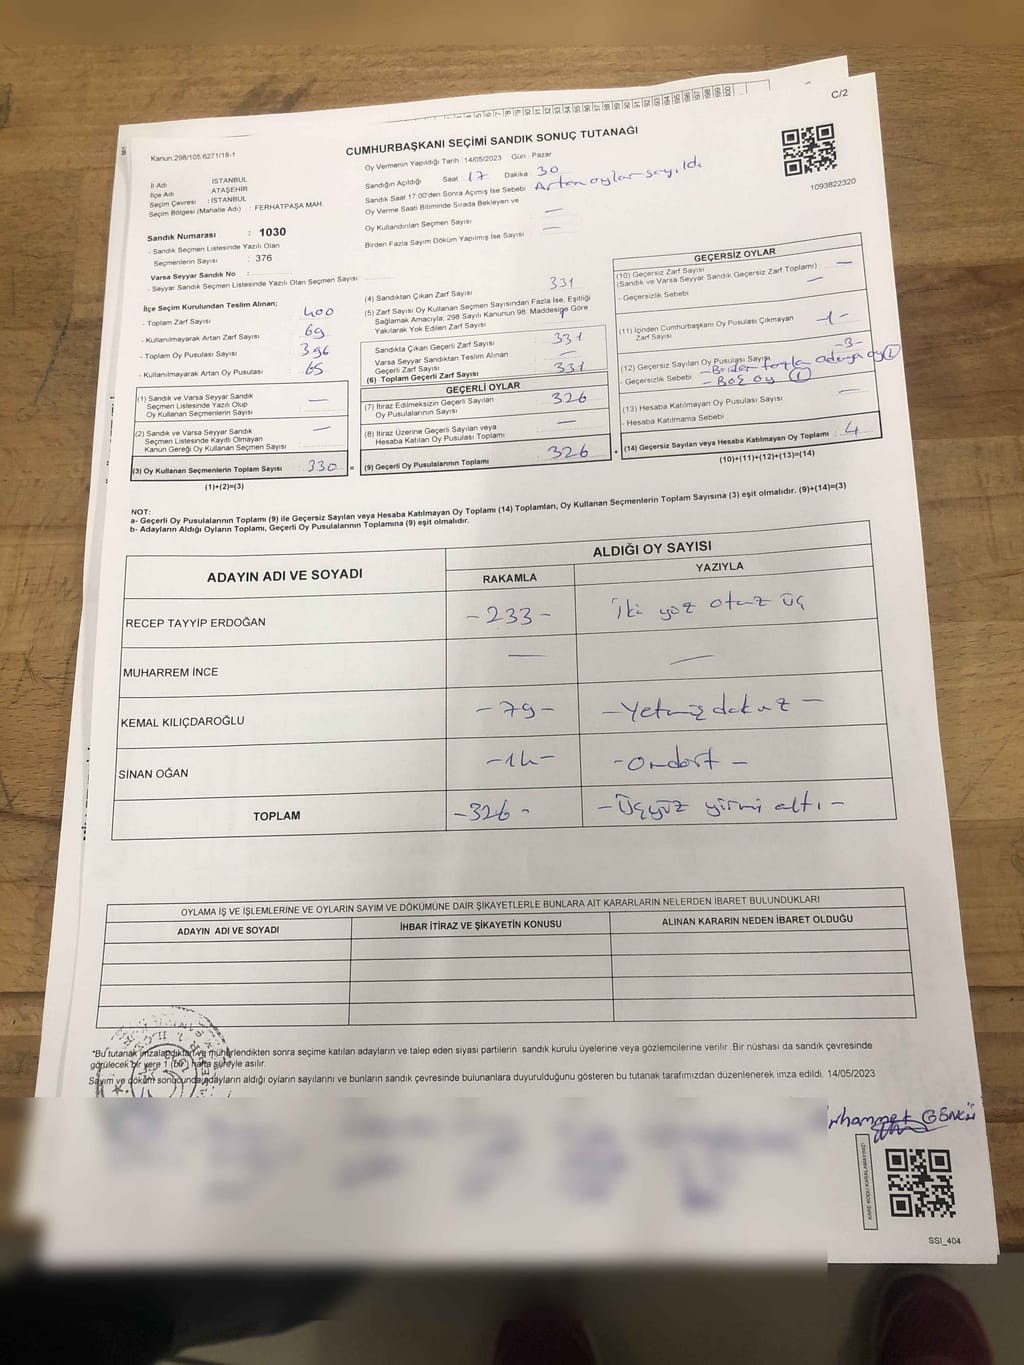 C/2
Kanun.298/105,6271/18-1
CUMHURBAŞKANI SEÇİMİ SANDIK SONUÇ TUTANAĞI
Oy Vermenin Yapıldığı Tarih : 14/05/2023 Gün : Pazar
1093822320
İl Adı : İSTANBUL
İlçe Adı : ATAŞEHİR
Seçim Çevresi : İSTANBUL
Seçim Bölgesi (Mahalle Adı) : FERHATPAŞA MAH
Sandığın Açıldığı Saat 17 Dakika 30
Sandık Saat 17:00'den Sonra Açımış İse Sebebi Artan oylar sayıldı
Oy Verme Saati Bitiminde Sırada Bekleyen ve
Oy Kullandırılan Seçmen Sayısı —
Birden Fazla Sayım Döküm Yapılmış İse Sayısı —
Sandık Numarası : 1030
- Sandık Seçmen Listesinde Yazılı Olan
Seçmenlerin Sayısı : 376
Varsa Seyyar Sandık No :
- Seyyar Sandık Seçmen Listesinde Yazılı Olan Seçmen Sayısı:
İlçe Seçim Kurulundan Teslim Alınan;
- Toplam Zarf Sayısı 400
- Kullanılmayarak Artan Zarf Sayısı 69
- Toplam Oy Pusulası Sayısı 396
- Kullanılmayarak Artan Oy Pusulası 65
(1) Sandık ve Varsa Seyyar Sandık
Seçmen Listesinde Yazılı Olup
Oy Kullanan Seçmenlerin Sayısı —
(2) Sandık ve Varsa Seyyar Sandık
Seçmen Listesinde Kayıtlı Olmayan
Kanun Gereği Oy Kullanan Seçmen Sayısı —
(3) Oy Kullanan Seçmenlerin Toplam Sayısı 330 =
(1)+(2)=(3)
(4) Sandıktan Çıkan Zarf Sayısı 331
(5) Zarf Sayısı Oy Kullanan Seçmen Sayısından Fazla İse, Eşitliği
Sağlamak Amacıyla; 298 Sayılı Kanunun 98. Maddesine Göre
Yakılarak Yok Edilen Zarf Sayısı
Sandıkta Çıkan Geçerli Zarf Sayısı 331
Varsa Seyyar Sandıktan Teslim Alınan
Geçerli Zarf Sayısı —
(6) Toplam Geçerli Zarf Sayısı 331
GEÇERLİ OYLAR
(7) İtiraz Edilmeksizin Geçerli Sayılan
Oy Pusulalarının Sayısı 326
(8) İtiraz Üzerine Geçerli Sayılan veya
Hesaba Katılan Oy Pusulası Toplamı —
(9) Geçerli Oy Pusulalarının Toplamı 326 +
GEÇERSİZ OYLAR
(10) Geçersiz Zarf Sayısı
(Sandık ve Varsa Seyyar Sandık Geçersiz Zarf Toplamı) —
- Geçersizlik Sebebi —
(11) İçinden Cumhurbaşkanı Oy Pusulası Çıkmayan
Zarf Sayısı -1-
(12) Geçersiz Sayılan Oy Pusulası Sayısı -3-
- Geçersizlik Sebebi - Birden fazla adaya oy
- Boş oy 1
(13) Hesaba Katılmayan Oy Pusulası Sayısı —
- Hesaba Katılmama Sebebi —
(14) Geçersiz Sayılan veya Hesaba Katılmayan Oy Toplamı 4
(10)+(11)+(12)+(13)=(14)
NOT:
a- Geçerli Oy Pusulalarının Toplamı (9) ile Geçersiz Sayılan veya Hesaba Katılmayan Oy Toplamı (14) Toplamları, Oy Kullanan Seçmenlerin Toplam Sayısına (3) eşit olmalıdır. (9)+(14)=(3)
b- Adayların Aldığı Oyların Toplamı, Geçerli Oy Pusulalarının Toplamına (9) eşit olmalıdır.
ADAYIN ADI VE SOYADI
ALDIĞI OY SAYISI
RAKAMLA YAZIYLA
RECEP TAYYİP ERDOĞAN -233- İki yüz otuz üç
MUHARREM İNCE — —
KEMAL KILIÇDAROĞLU -79- -Yetmiş dokuz-
SİNAN OĞAN -14- -Ondört-
TOPLAM -326- -Üçyüz yirmi altı-
OYLAMA İŞ VE İŞLEMLERİNE VE OYLARIN SAYIM VE DÖKÜMÜNE DAİR ŞİKAYETLERLE BUNLARA AİT KARARLARIN NELERDEN İBARET BULUNDUKLARI
ADAYIN ADI VE SOYADI İHBAR İTİRAZ VE ŞİKAYETİN KONUSU ALINAN KARARIN NEDEN İBARET OLDUĞU
*Bu tutanak imzalandıktan ve mühürlendikten sonra seçime katılan adayların ve talep eden siyasi partilerin sandık kurulu üyelerine veya gözlemcilerine verilir .Bir nüshası da sandık çevresinde
görülecek bir yere 1 (bir) hafta süreyle asılır.
Sayım ve döküm sonucunda adayların aldığı oyların sayılarını ve bunların sandık çevresinde bulunanlara duyurulduğunu gösteren bu tutanak tarafımızdan düzenlenerek imza edildi. 14/05/2023
KARE KODU KARALAMAYINIZ!
SSI_404